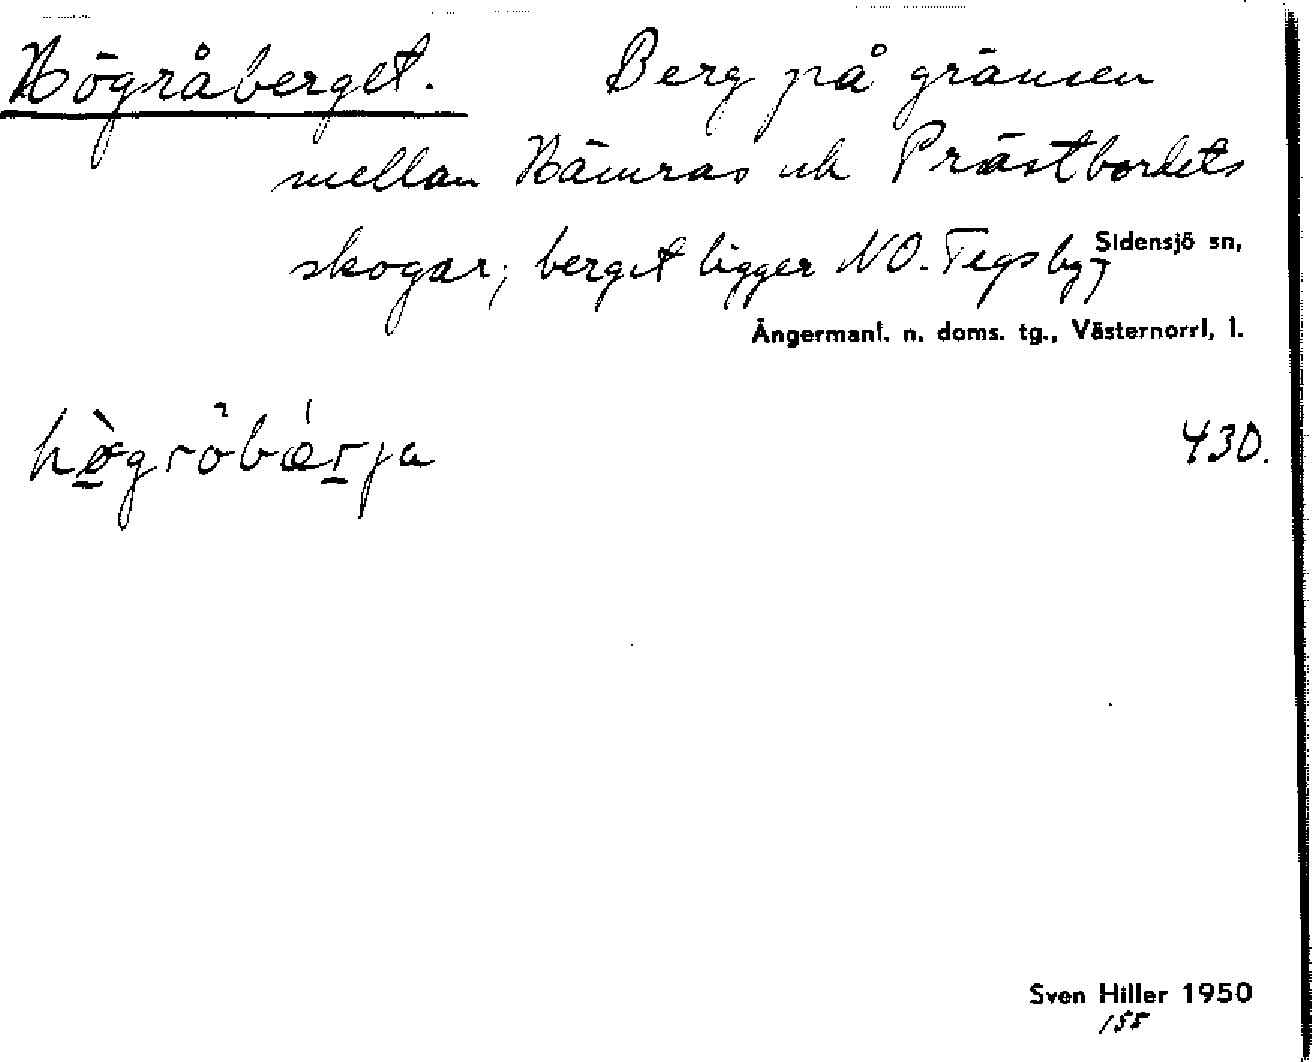 Högråberget. Berg på gränsen
mellan Hämras och Prästbordets
skogar; berget ligger NO. Tegsby,
Sidensjö sn,
Ångermanl. n. doms. tg., Västernorrl, l.
430.
Sven Hiller 1950
155